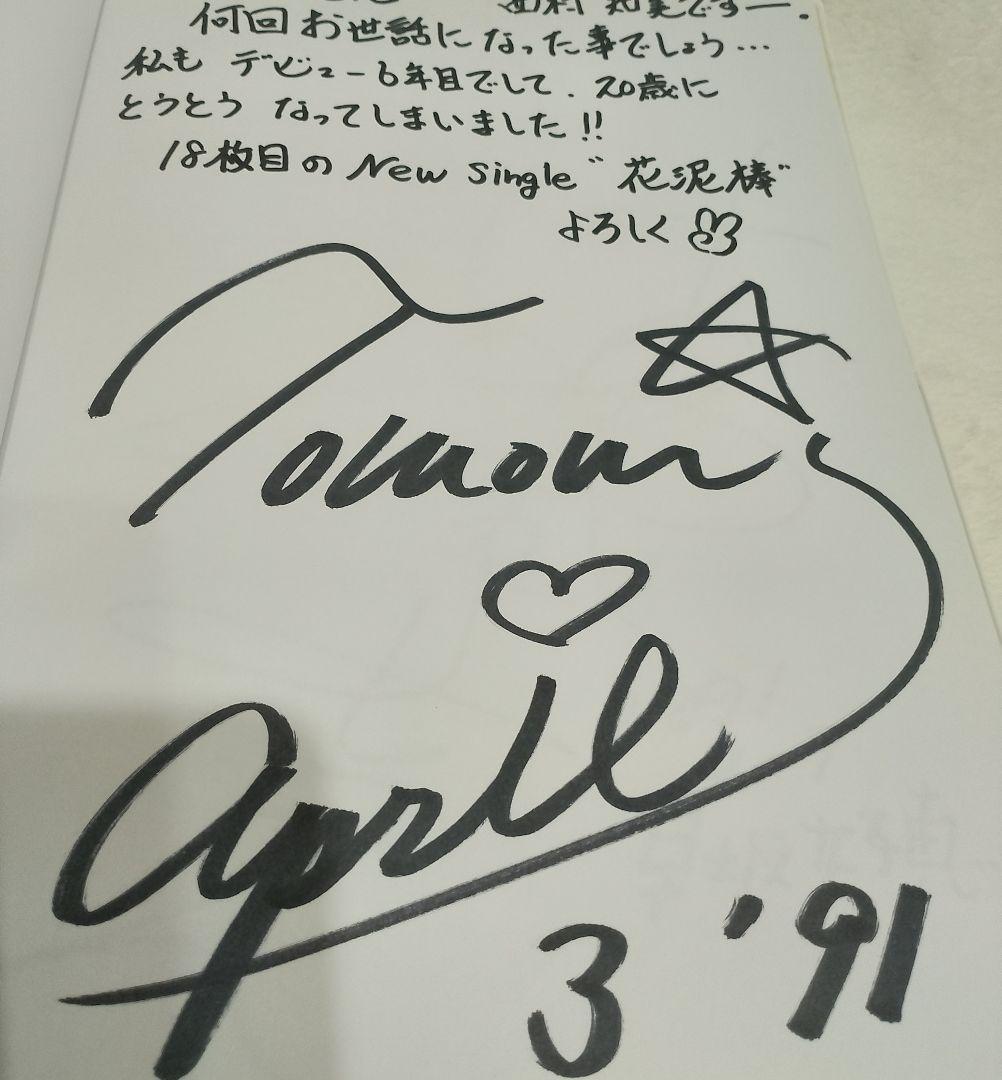 西村 知美ですー.
何回お世話になった事でしょう…
私も デビュー6年目でして. 20歳に
とうとう なってしまいました!!
18枚目の New Single “花泥棒”
よろしく
Tomomi
April
3 '91